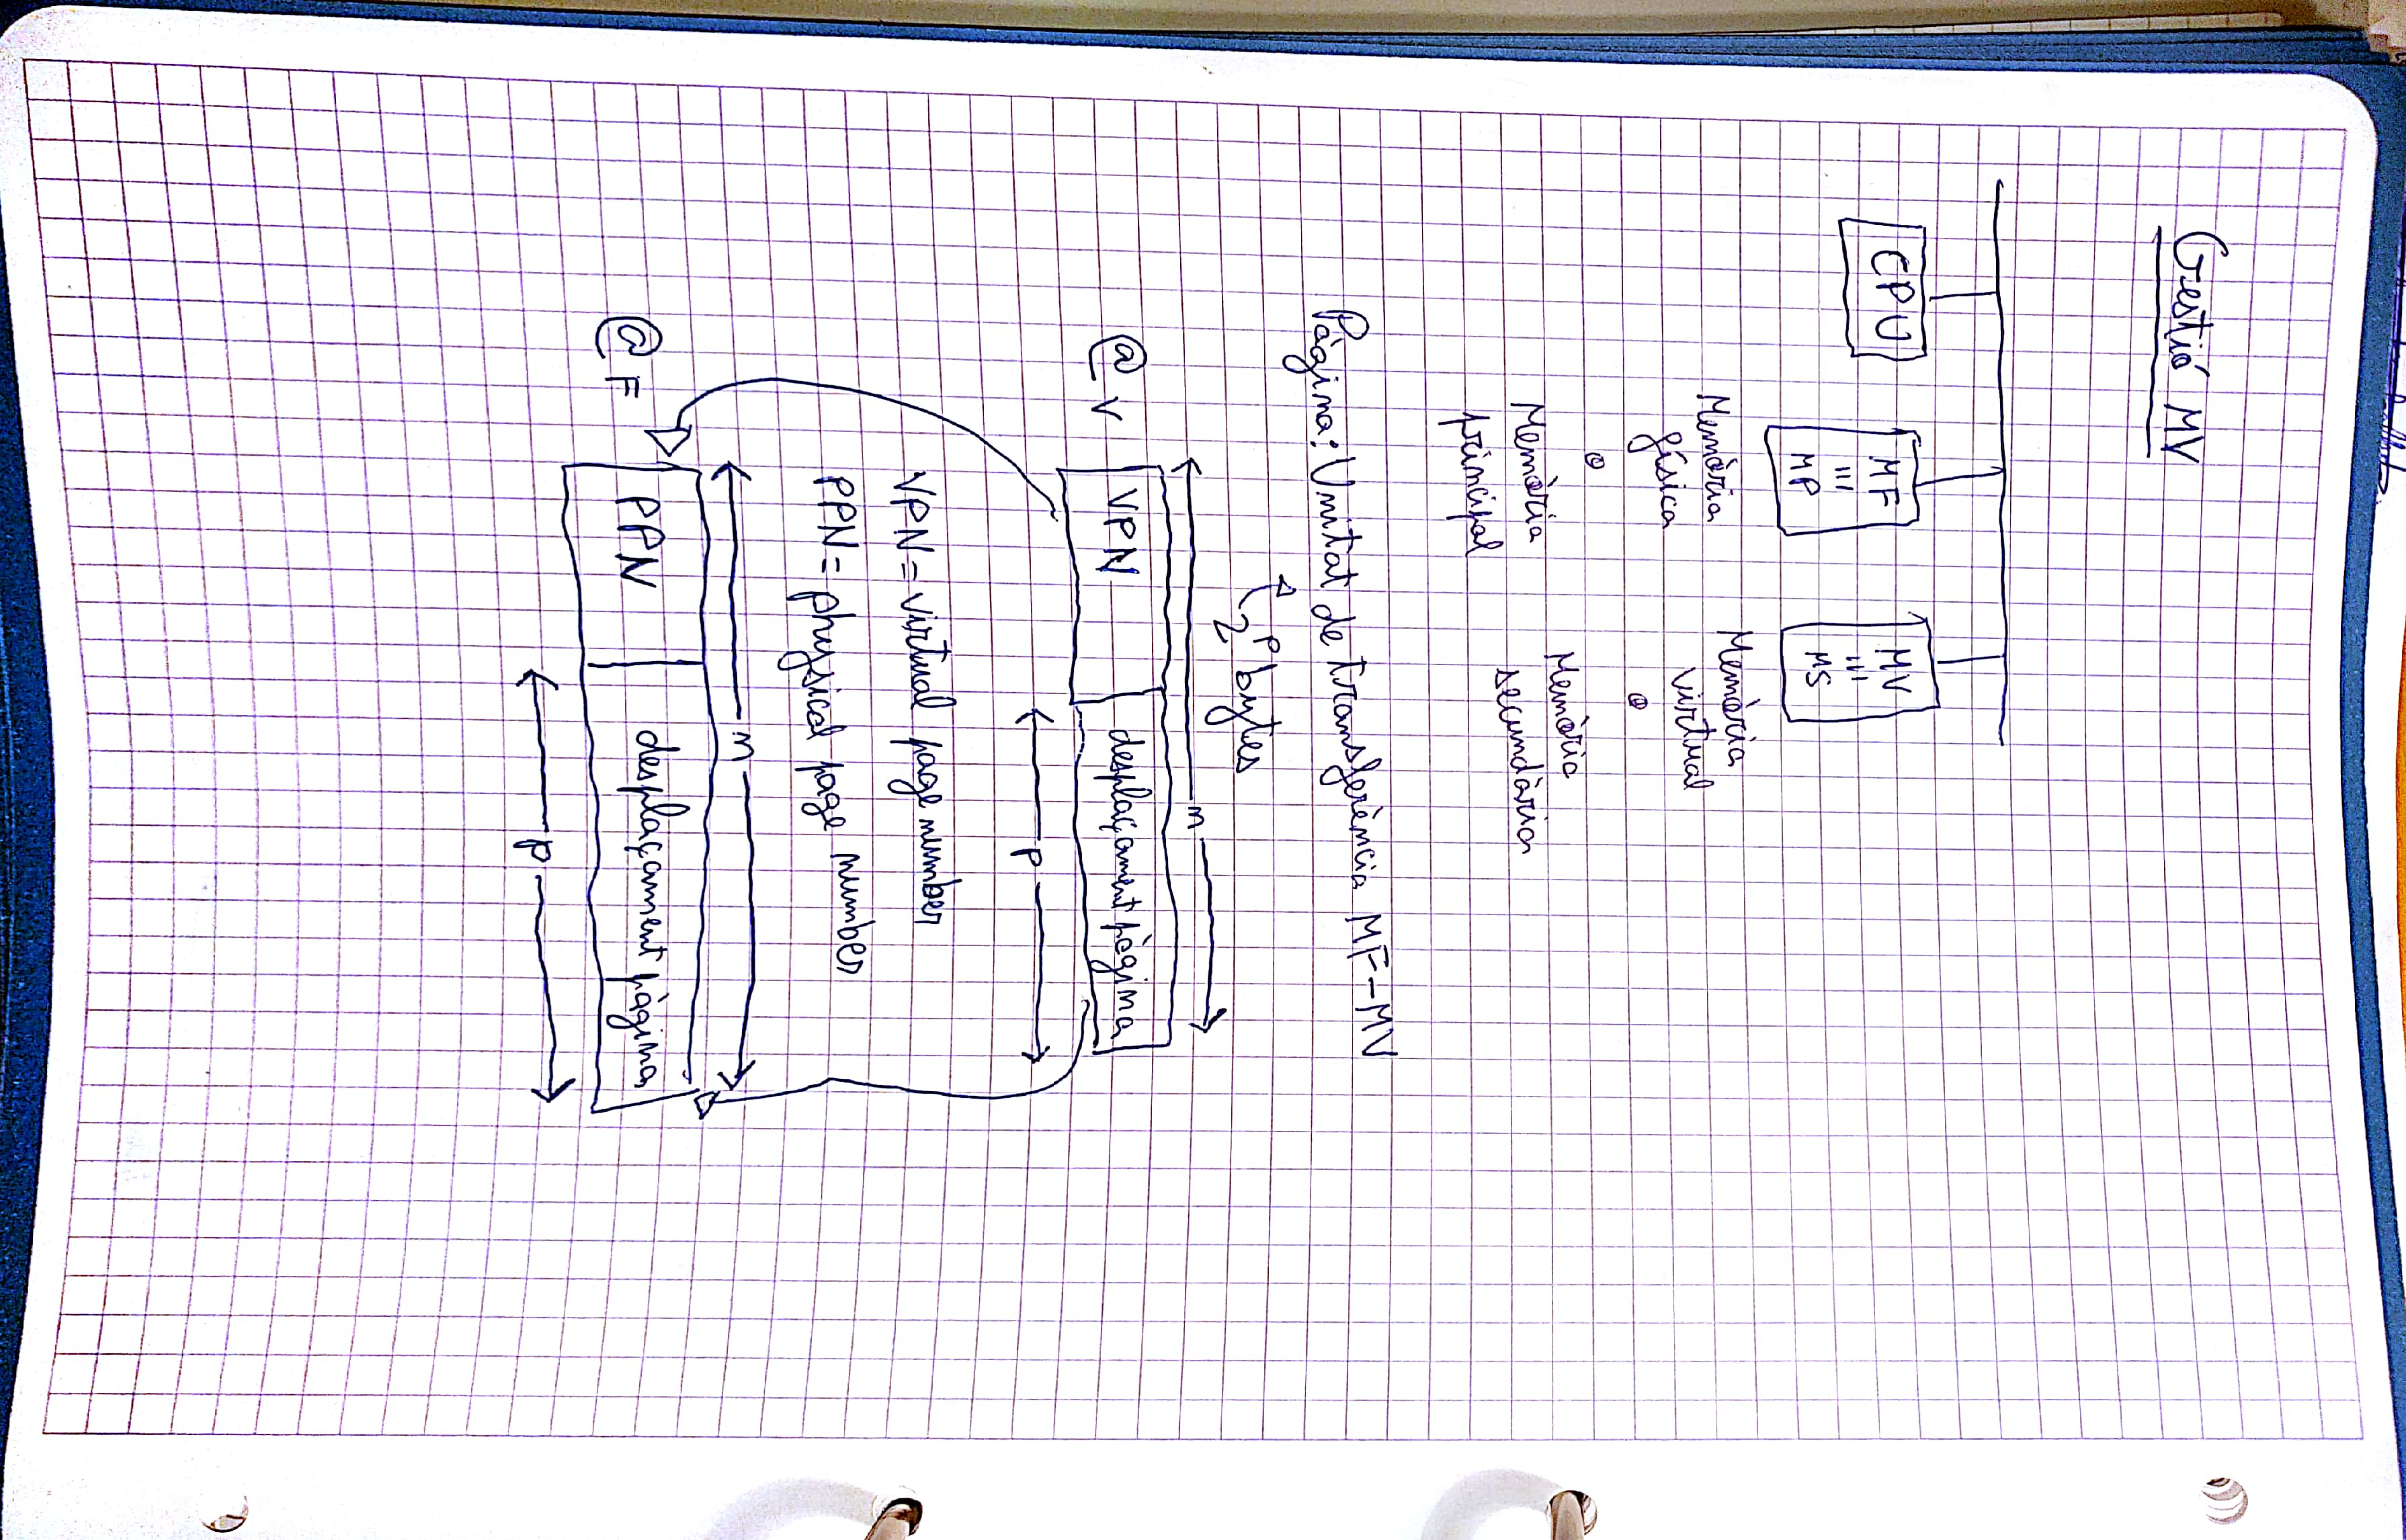 Gestió MV
CPU
MF
≡
MP
MV
≡
MS
Memòria
física
o
Memòria
principal
Memòria
virtual
o
Memòria
secundària
Pàgina: Unitat de transferència MF-MV
2^p bytes
n
@V VPN desplaçament pàgina
p
VPN = virtual page number
PPN = physical page number
m
@F PPN desplaçament pàgina
p